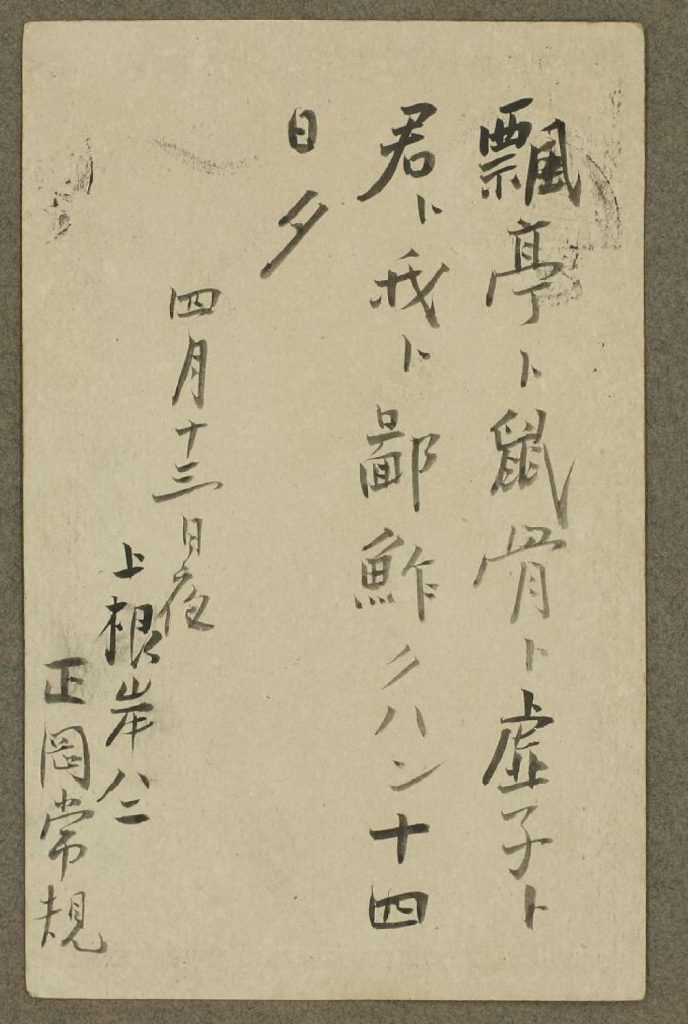 飄亭ト鼠骨ト虚子ト
君ト我ト鄙鮓クハン十四
日夕
四月十三日夜
上根岸八二
正岡常規